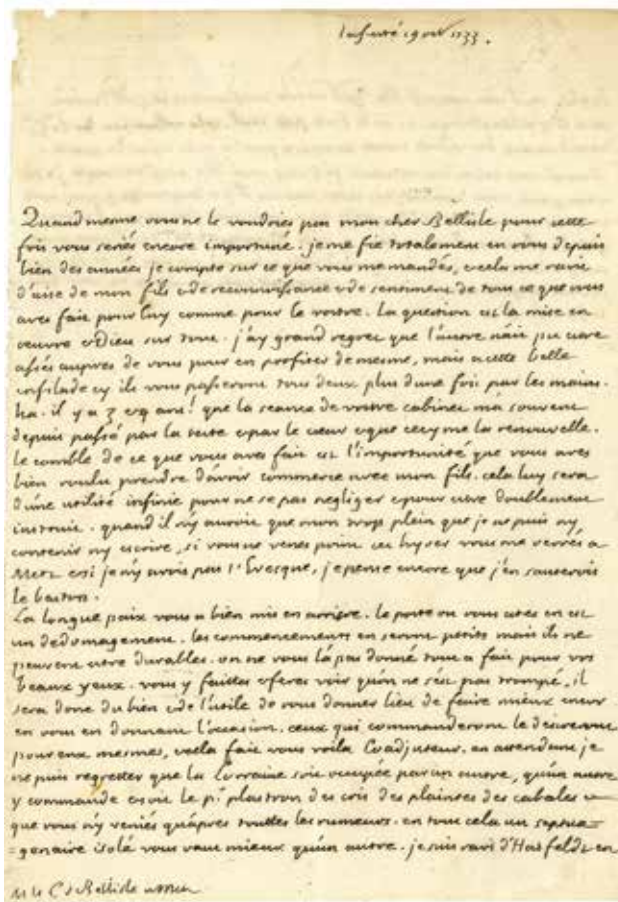 la ferté 19 oct 1733.
Quand mesme vous ne le voudriés pas mon cher Bellisle pour cette
fois vous seriés encore importuné. je me fie totalement en vous depuis
bien des années je compte sur ce que vous me mandés, & cela me ravit
d'aise de mon fils & de reconnoissance & de sentiment de tout ce que vous
avés fait pour luy comme pour le vostre. La question est la mise en
œuvre & Dieu sur tout. j'ay grand regret que l'autre n'ait pu estre
assés aupres de vous pour en profiter de mesme, mais a cette belle
enfilade cy ils vous passeront tous deux plus d'une fois par les mains.
ha. il y a 3 & 4 ans! que la seance de vostre cabinet m'a souvent
depuis passé par la teste & par le cœur & que cecy me la renouvelle.
le comble de ce que vous avés fait est l'importunité que vous avés
bien voulu prendre d'avoir commerce avec mon fils. cela luy sera
d'une utilité infinie pour ne se pas negliger & pour estre doublement
instruit. quand il n'y auroit que mon trop plein que je ne puis ny
contenir ny escrire, si vous ne venés point cet hyver vous me verrés a
Metz & si je n'y avois pas l'Evesque, je pense encore que j'en sauterois
le baston.
La longue paix vous a bien mis en arriere. le poste ou vous estes en est
un dedomagement. les commencements en seront petits mais ils ne
peuvent estre durables. on ne vous l'a pas donné tout a fait pour vos
beaux yeux. vous y faittes & ferés voir qu'on ne s'est pas trompé, il
sera donc du bien & de l'utile de vous donner lieu de faire mieux encor
en vous en donnant l'occasion. ceux qui commanderont le desireront
pour eux mesmes, & cela fait vous voila Coadjuteur. en attendant je
ne puis regretter que la Lorraine soit occupée par un autre, qu'un autre
y commande & soit le pr. plastron des cris des plaintes des cabales &
que vous n'y veniés qu'apres touttes les rumeurs. en tout cela un septua=
=genaire isolé vous vaut mieux qu'un autre. je suis ravi d'Hasfeldt en
M le C. de Bellisle